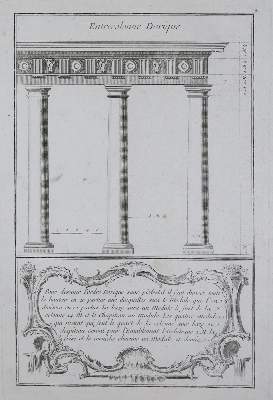 Entrecolonne Dorique
Pour dessiner l'ordre Dorique sans piédestal il faut diviser toute
la hauteur en 20 parties une desquelles sera le Module que l'on
divisera en 12 parties la baze aura un Module le fust de la
colonne 14 M et le Chapiteau un Module Les quatre modules
qui restent qui font le quart de la colonne avec baze et
chapiteau seront pour l'Entablement l'Architrave 1 M la
frise et la corniche chacune un Module et demie